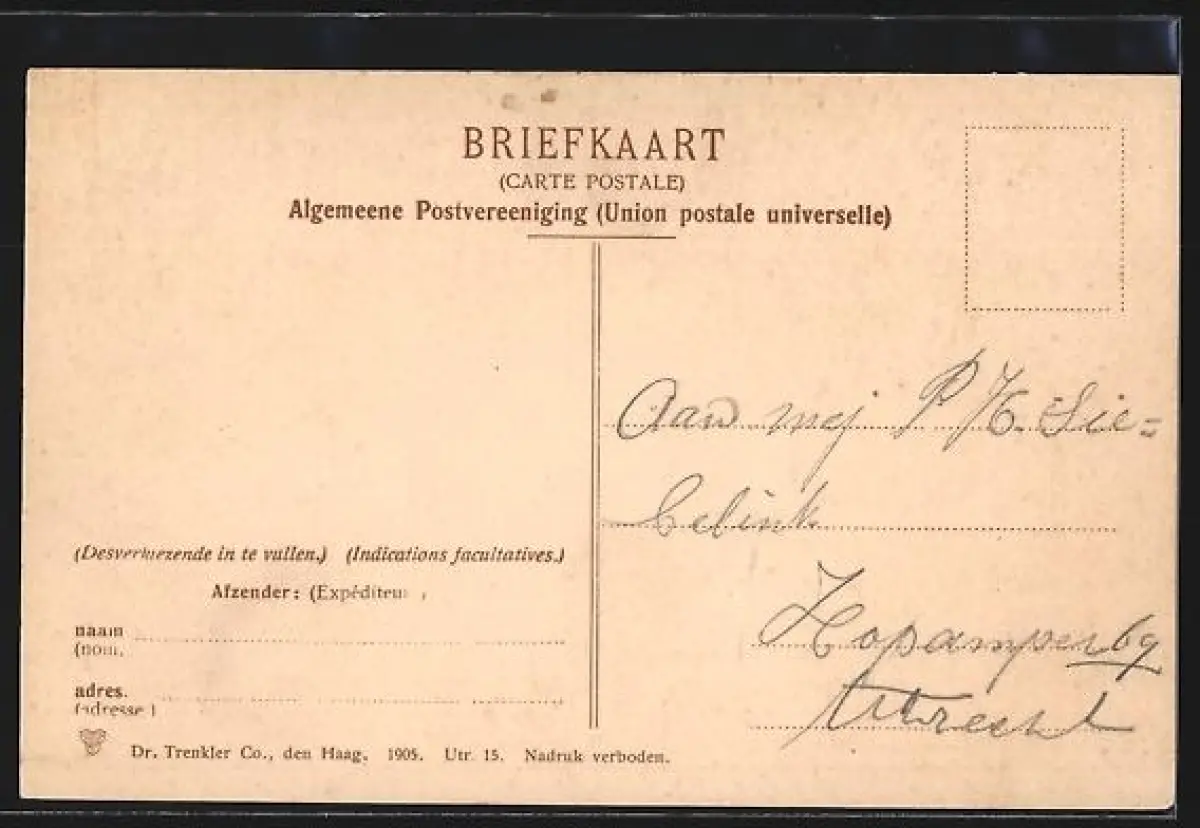 BRIEFKAART
(CARTE POSTALE)
Algemeene Postvereeniging (Union postale universelle)
Aan mej P H. Sie=
belink
69
Utrecht
(Desverkiezende in te vullen.) (Indications facultatives.)
Afzender: (Expéditeur
naam
(nom,
adres.
(adresse)
Dr. Trenkler Co., den Haag. 1905. Utr 15. Nadruk verboden.